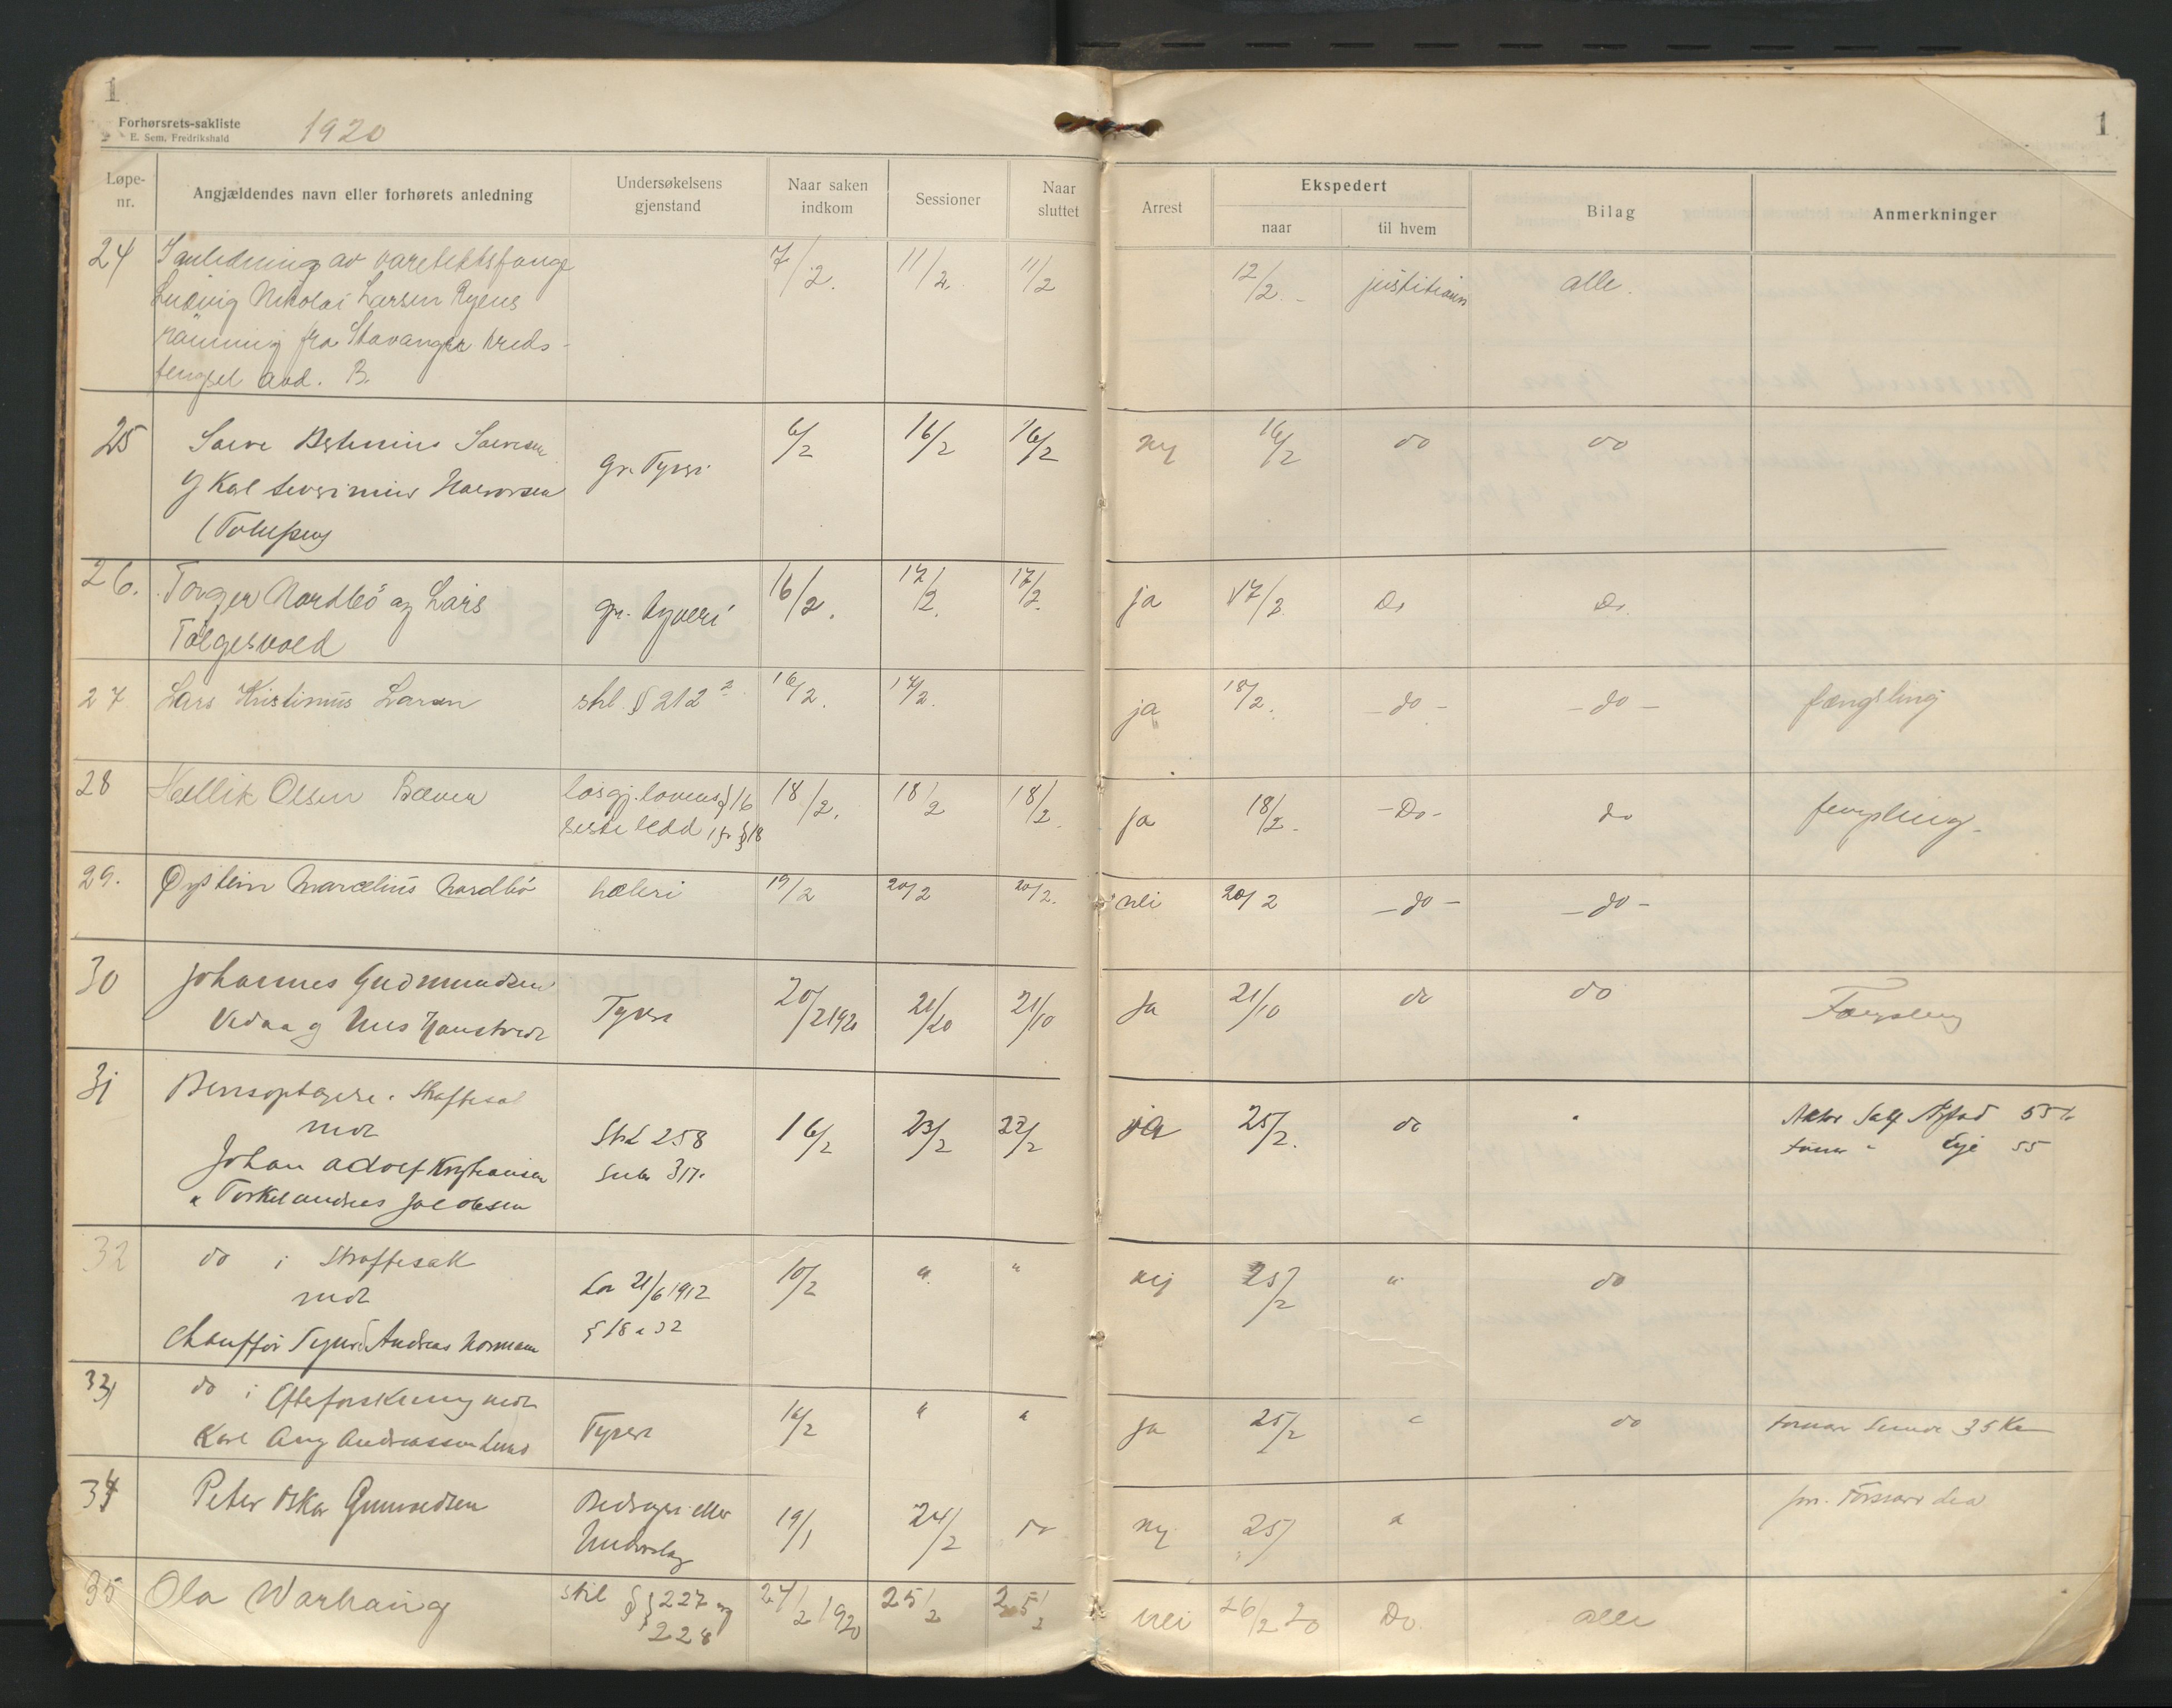 1
Forhørsrets-sakliste
E. Sem, Fredrikshald
1920
1
Løpe-nr.
Angjældendes navn eller forhørets anledning
Undersøkelsens gjenstand
Naar saken indkom
Sessioner
Naar sluttet
Arrest
Ekspedert
naar
til hvem
Bilag
Anmerkninger
24
I anledning av varetektsfange
Ludvig Nikolai Larsen Ryens
rømning fra Stavanger kreds-
fengsel avd. B.
7/2.
11/2.
11/2
12/2. -
justitiarius
alle.
25
og Karl Severinius Halvorsen
gr. Tyveri
6/2
16/2
16/2
nej
16/2
do
do
26.
Torger Nordbö og Lars
Tølgesvold
gr. tyveri
16/2.
17/2.
17/2.
ja
17/2
Do
Do.
27
Lars Kristinius Larsen
strl. § 212 2
16/2.
17/2.
ja
18/2.
- do -
- do -
fængsling
28
Olsen Bæver
løsgj. lovens § 16
siste ledd jfr § 18
18/2.
18/2
18/2.
ja
18/2-
- Do -
do
fengsling-
29.
Øystein Marcelius Nordbö
hæleri
19/2
20/2
20/2.
nei
20/2
- do -
- do -
30
Johannes Gudmundsen
Vedaa og Nils
Tyveri
20/2 1920
21/20
21/10
Ja
21/10
do
do
Fængsling
31
Bevisoptagelse i Straffesak
mot
Johan Adolf Kristiansen
" Torkel Andreas Jacobsen
Strl 258
317.
16/2
23/2
23/2
ja
25/2.
do
"
55
55
32
do i Straffesak
mot
Chauffør Sigurd Andreas Normann
Lov 21/6 1912
§ 18 a 32
10/2
"
"
nej
25/2
"
do
33
do i Efterforskning mot
Karl Aug Andreassen Lund
Tyveri
16/2
"
"
ja
25/2
"
do
35 Kr
34
Peter Oskar Gunvaldsen
Bedrageri eller
Underslag
19/1
24/2
do
nej
25/
"
35
Ola Warhaug
stl §§ 227 og
228
24/2 1920
25/2
25/2
nei
26/2 20
Do.
alle